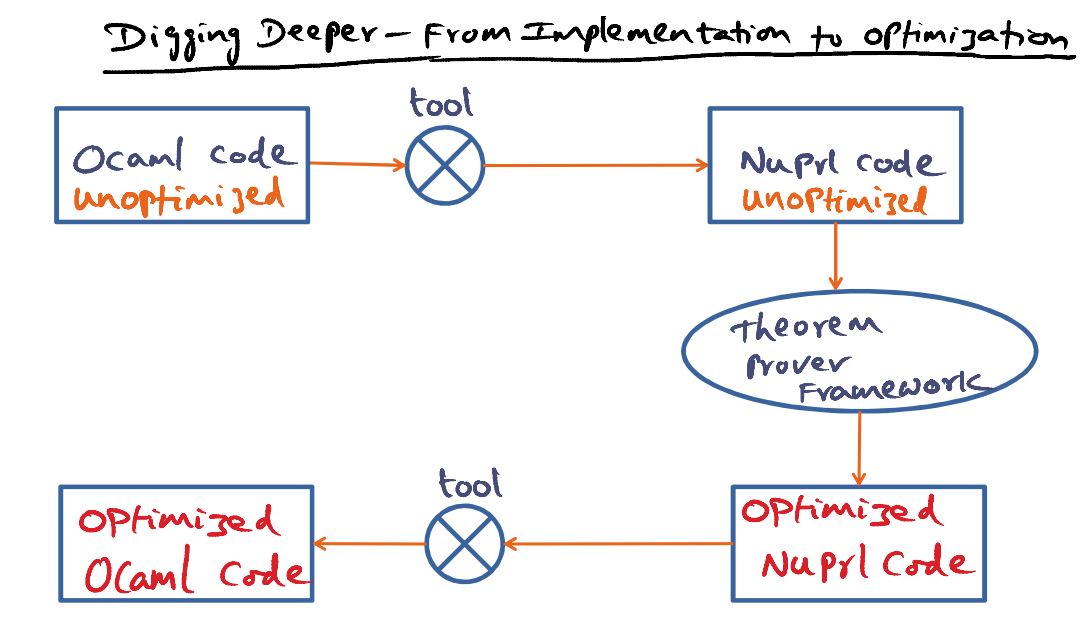 Digging Deeper - From Implementation to Optimization
tool
Ocaml code
unoptimized
Nuprl code
unoptimized
Theorem
Prover
Framework
tool
Optimized
Ocaml code
Optimized
Nuprl code